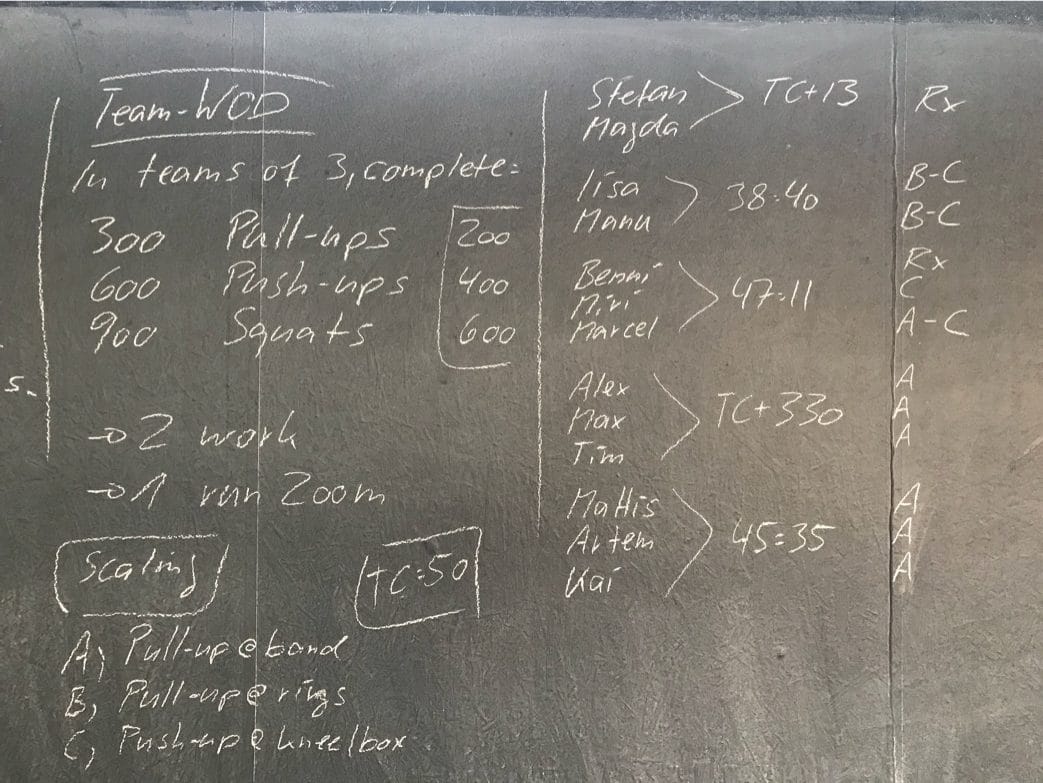 Team-WOD
In teams of 3, complete:
300 Pull-ups 200
600 Push-ups 400
900 Squats 600
→ 2 work
→ 1 run 200m
Scaling
TC: 50
A) Pull-up @ band
B) Pull-up @ rings
C) Push-up @ knee/box
s.
Stefan
Magda
TC+13
Rx
Lisa
Manu
38:40
B-C
B-C
Benni
Miri
Marcel
47:11
Rx
C
A-C
Alex
Max
Tim
TC+330
A
A
A
Mattis
Artem
Kai
45:35
A
A
A